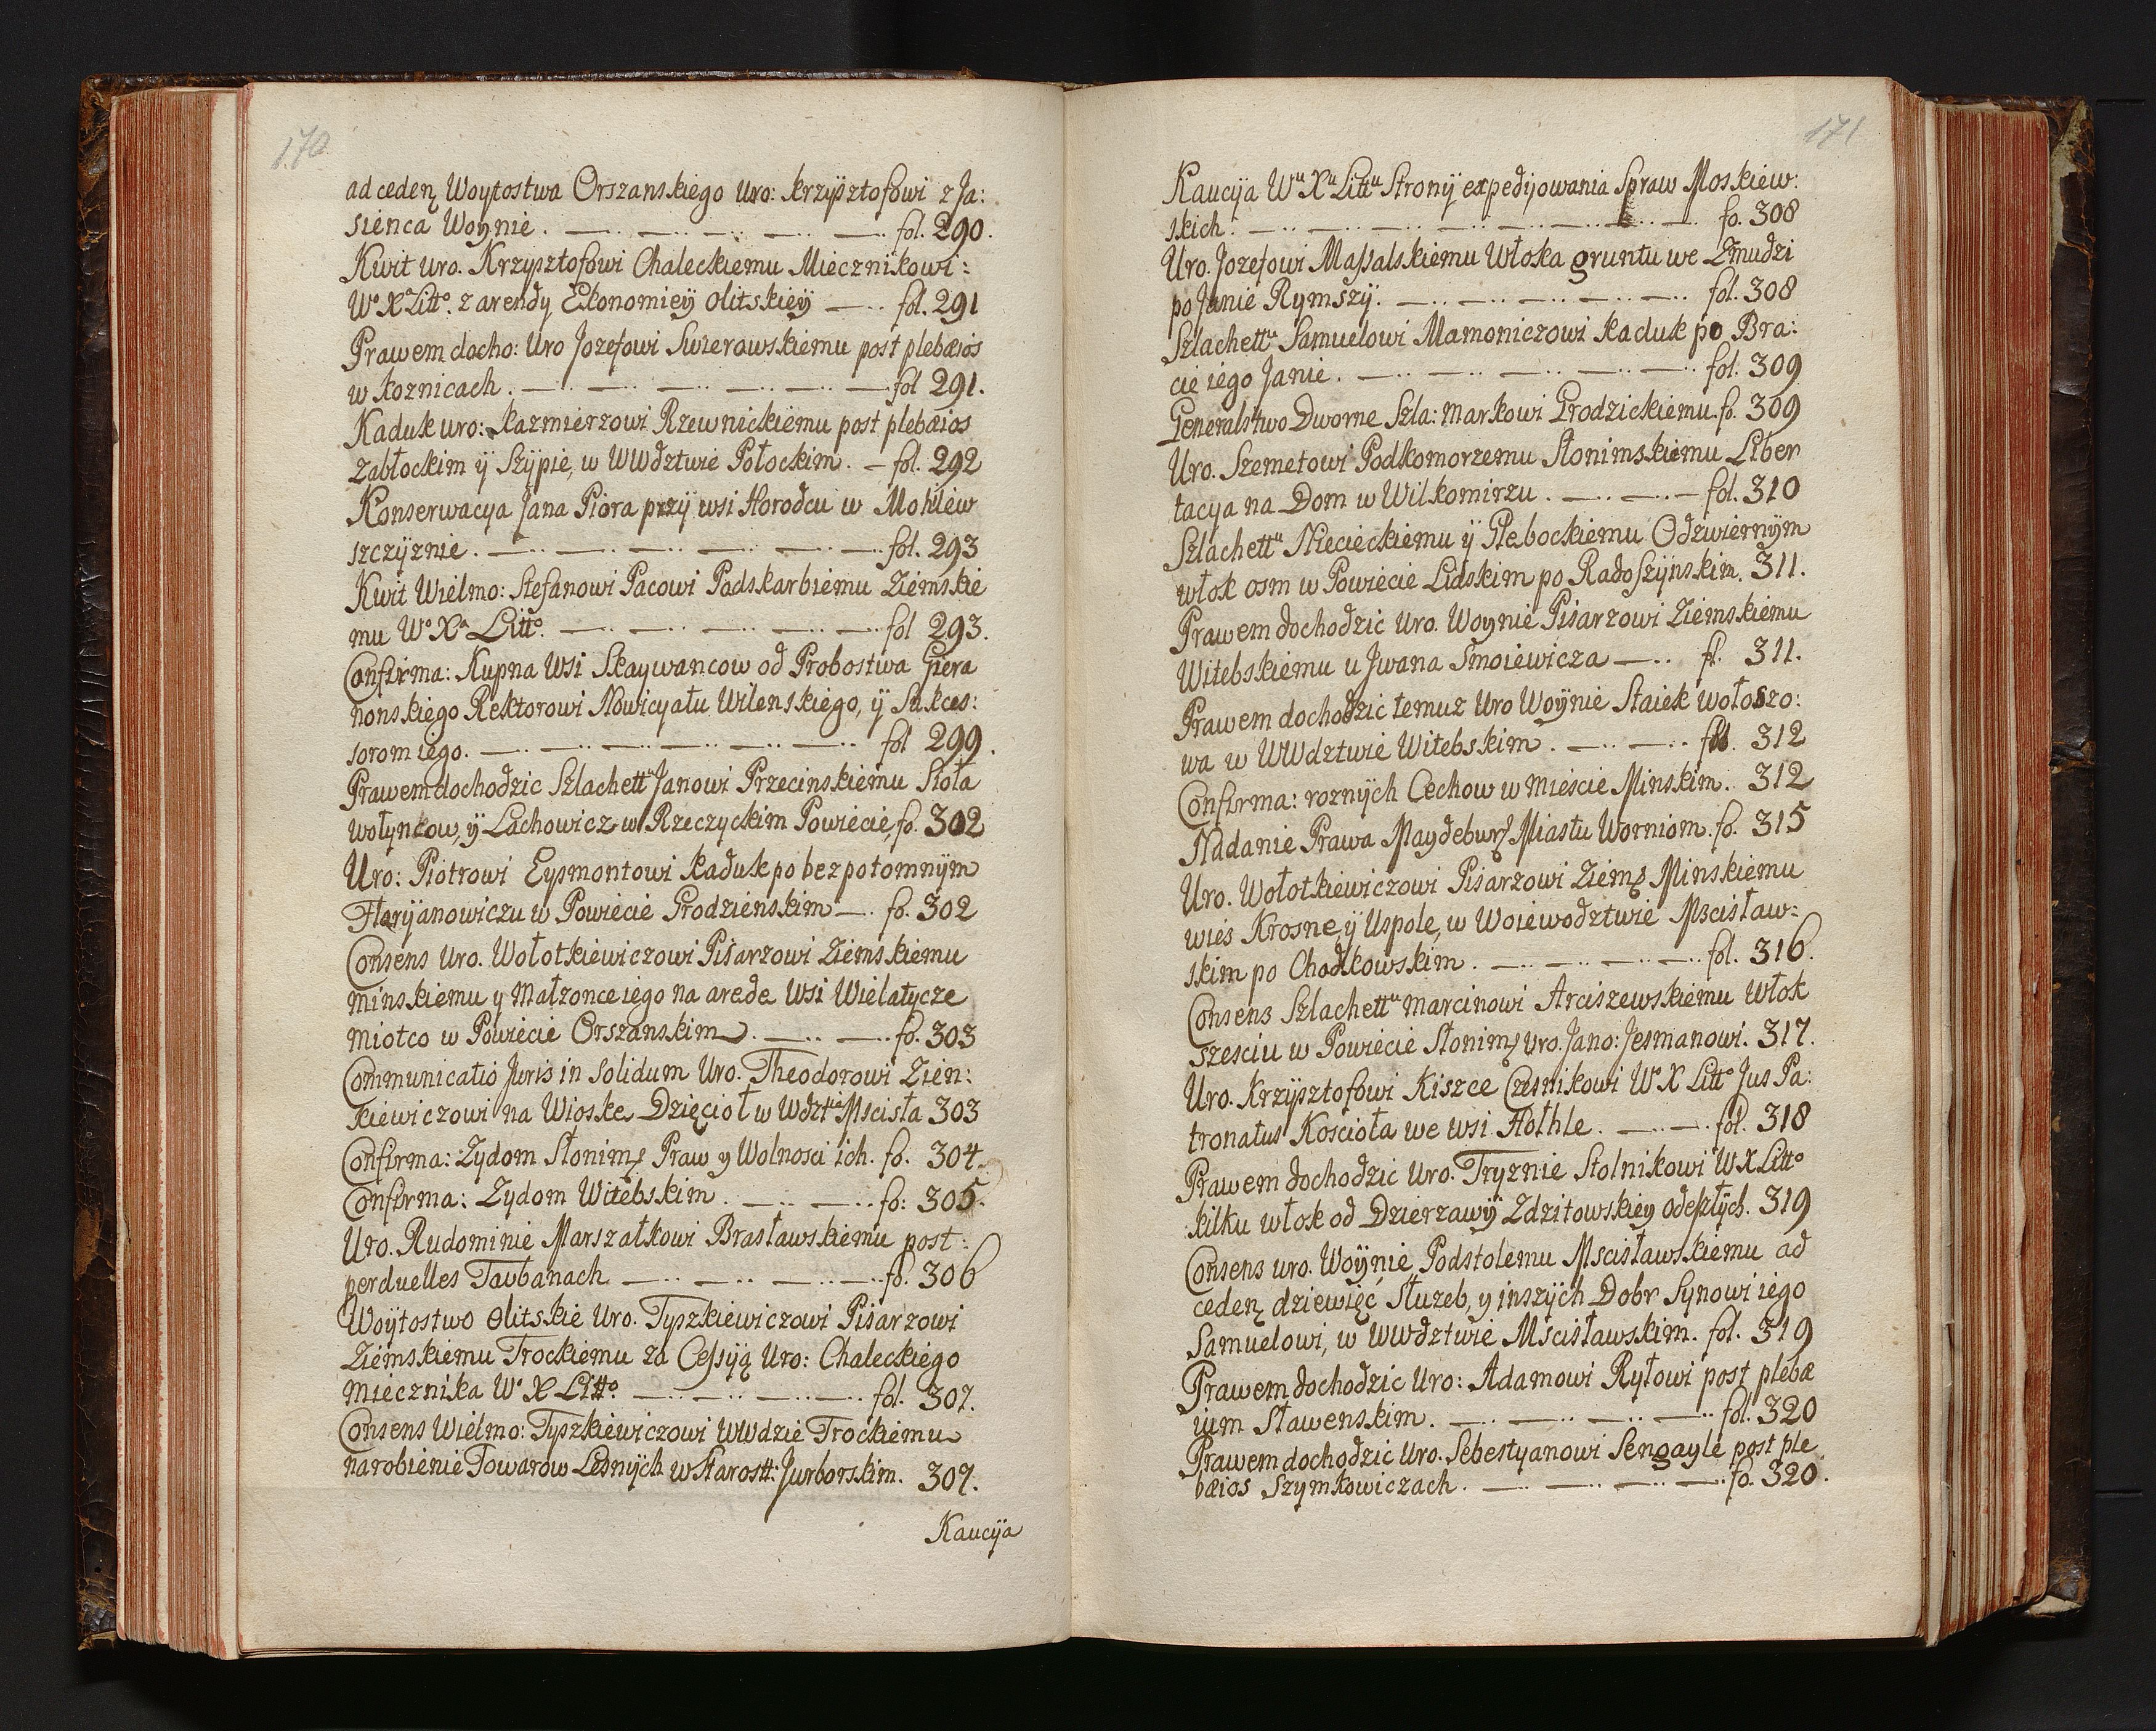 170
ad ceden Woytostwa Orszanskiego Uro: Krzysztofowi z Ja:
sienca Woynie. fol. 290.
Kwit Uro. Krzysztofowi Chaleckiemu Miecznikowi:
Wo X Litto. z arendy Ekonomiey Olitskiey fol. 291
Prawem docho: Uro Jozefowi Swierawskiemu post plebæios
w Łoznicach. fol 291.
Kaduk uro: Kazmierzowi Rzewnickiemu post plebæios
Zabłockim ÿ Szypie, w WWdztwie Połockim. fol. 292
Konserwacya Jana Piora przÿ wsi Horodcu w Mohilew
szczÿznie. fol. 293
Kwit Wielmo: Stefanowi Pacowi Podskarbiemu Ziemskie
mu Wo Xa Litto. fol 293.
Confirma: Kupna Wsi Skaywancow od Probostwa Giera
nonskiego Rektorowi Nowicyatu Wilenskiego, ÿ Sukces:
sorom iego. fol 299.
Prawem dochodzic Szlachettu Janowi Przecinskiemu Sioła
wołyncow, ÿ Lachowicz w Rzeczyckim Powiecie, fo. 302
Uro: Piotrowi Eysmontowi Kaduk po bezpotomnÿm
Florÿanowiczu w Powiecie Grodzienskim fo. 302
Consens Uro. Wołotkiewiczowi Pisarzowi Ziemskiemu
Minskiemu y Małzonce iego na arede Wsi Wielatycze
Miotco w Powiecie Orszanskim. fo. 303
Communicatio Juris in Solidum Uro. Theodorowi Zien:
kiewiczowi na Wioske Dzięcioł w Wdztwie Mscisła 303
Confirma: Zydom Słonims Praw y Wolnosci ich. fo. 304.
Confirma: Zydom Witebskim. fo: 305.
Uro. Rudominie Marszałkowi Brasławskiemu post:
perduelles Taubanach fo. 306
Woÿtostwo Olitskie Uro. Tyszkiewiczowi Pisarzowi
Ziemskiemu Trockiemu za Cessÿą Uro: Chaleckiego
Miecznika Wo X Litto. fol. 307.
Consens Wielmo: Tyszkiewiczowi WWdzie Trockiemu
na robienie Towarow Lesnÿch w Starostt: Jurborskim. 307.
Kaucÿa
171
Kaucÿa Wu Xu Littu Stronÿ expedÿowania Spraw Moskiew:
skich. fo. 308
Uro. Jozefowi Massalskiemu Włoka gruntu we Zmudzi
po Janie Rymszÿ. fol. 308
Szlachettu Samuelowi Mamoniczowi Kaduk po Bra:
cie iego Janie. fol. 309
Generalstwo Dworne Szla: Markowi Grodzickiemu. fo. 309
Uro. Szemetowi Podkomorzemu Słonimskiemu Liber
tacya na Dom w Wilkomirzu. fol. 310
Szlachettu Niecieckiemu ÿ Głebockiemu Odzwiernÿm
włok osm w Powiecie Lidskim po Radoszÿnskim. 311.
Prawem dochodzic Uro. Woynie Pisarzowi Ziemskiemu
Witebskiemu u Jwana Smoiewicza fl. 311.
Prawem dochodzic temuz Uro Woÿnie Staiek wołoszo:
wa w WWdztwie Witebskim. fol. 312
Confirma: roznÿch Cechow w Miescie Minskim. 312
Naddanie Prawa Maydeburs Miastu Worniom. fo. 315
Uro. Wołotkiewiczowi Pisarzowi Ziems Minskiemu
wies Krosne, ÿ Uspole, w Woiewodztwie Mscisław:
skim po Chodkowskim. fol. 316.
Consens Szlachettu Marcinowi Arciszewskiemu włok
szesciu w Powiecie Słonims Uro. Jano: Jesmanowi. 317.
Uro. Krzÿsztofowi Kiszce Czesnikowi Wo X Litto Jus Pa:
tronatus Koscioła we wsi Hołhle. fol. 318
Prawem dochodzic Uro. Tryznie Stolnikowi W X Litto
kilku włok od Dzierzawÿ Zdzitowskiey odeszłÿch. 319
Consens uro. Woÿnie Podstolemu Mscisławskiemu ad
ceden dziewięć Słuzeb, y inszÿch Dobr Synowi iego
Samuelowi, w WWdztwie Mscisławskim. fol. 319
Prawem dochodzic Uro: Adamowi Ryłowi post plebæ
ium Sławenskim. fol. 320
Prawem dochodzic Uro. Sebestyanowi Sengayle post ple
bæios Szymkowiczach. fo. 320.